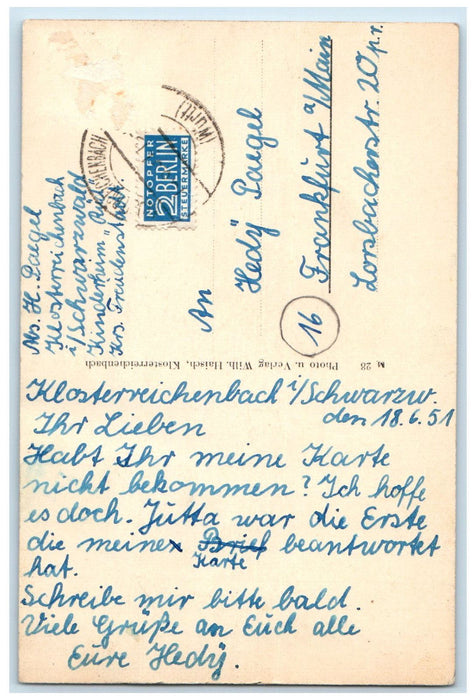 Abs. H. Paegel
Klosterreichenbach
i/Schwarzwald
Kinderheim
Krs. Freudenstadt.
CKENBACH
(WÜRTT)
NOTOPFER
2 BERLIN
STEUERMARKE
An
Hedÿ Paegel
Frankfurt a/Main
Lorsbacherstr. 20 p.r.
16
M 28 Photo u. Verlag Wilh. Haisch, Klosterreichenbach
Klosterreichenbach i/Schwarzw.
den 18.6.51
Ihr Lieben
Habt Ihr meine Karte
nicht bekommen? Ich hoffe
es doch. Jutta war die Erste
die meine Brief beantwortet
Karte
hat.
Schreibe mir bitte bald.
Viele Grüße an Euch alle
Eure Hedÿ.